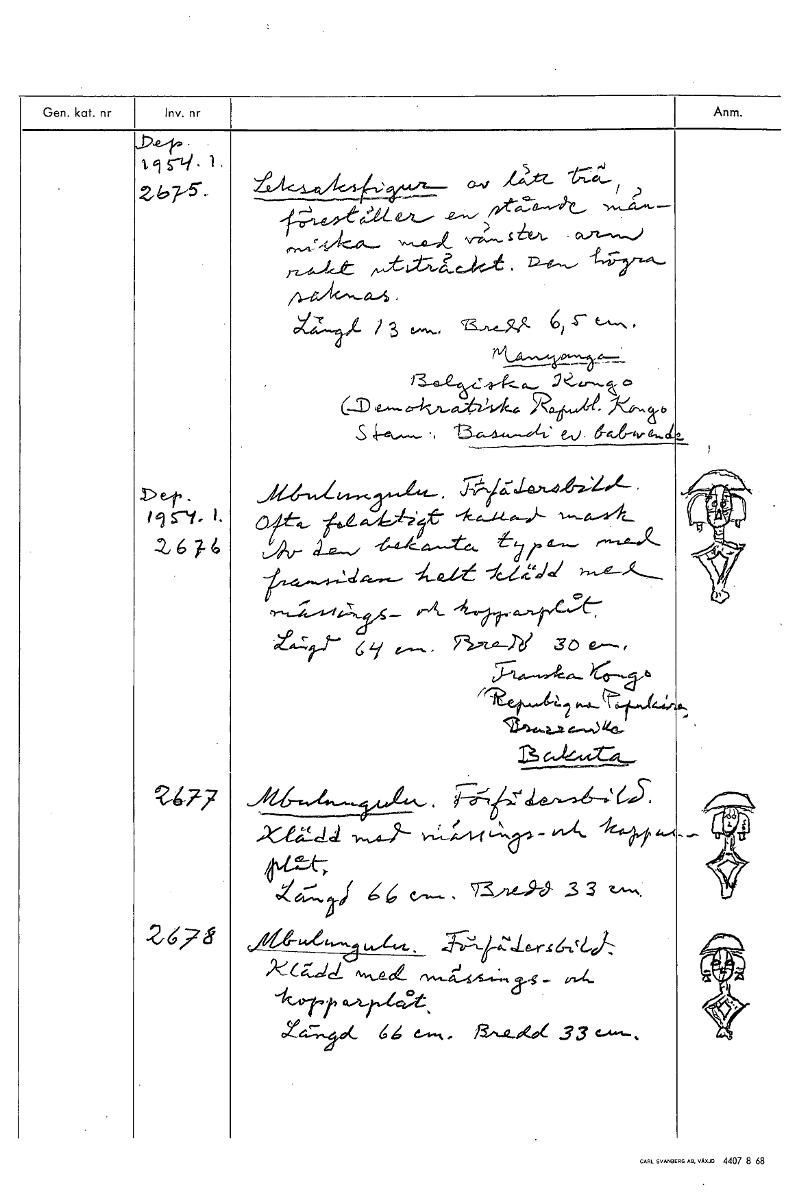 Gen. kat. nr Inv. nr Anm.
Dep.
1954.1.
2675. Leksaksfigur av lätt trä,
föreställer en stående män-
niska med vänster arm
rakt utsträckt. Den högra
saknas.
Längd 13 cm. Bredd 6,5 cm.
Manyanga
Belgiska Kongo
(Demokratiska Republ. Kongo
Stam: Basundi ev. babwende
Dep. Mbulungulu. Förfädersbild.
1954.1. Ofta felaktigt kallad mask
2676 Av den bekanta typen med
framsidan helt klädd med
mässings- och kopparplåt.
Längd 64 cm. Bredd 30 cm.
Franska Kongo
Republique Populaire,
Brazzaville
Bakuta
2677 Mbulungulu. Förfädersbild.
Klädd med mässings- och koppar-
plåt.
Längd 66 cm. Bredd 33 cm.
2678 Mbulungulu. Förfädersbild.
Klädd med mässings- och
kopparplåt.
Längd 66 cm. Bredd 33 cm.
CARL SVANBERG AB, VÄXJÖ 4407 8 68